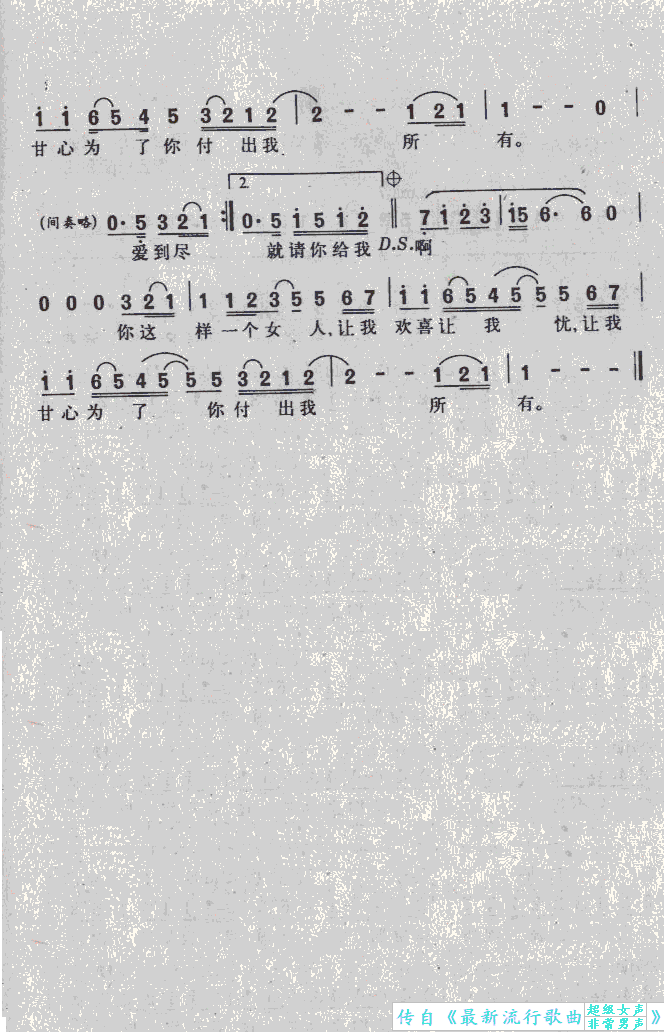 1 1 6 5 4 5 3 2 1 2 | 2 - - 1 2 1 | 1 - - 0 |
甘心为 了你付 出我 所 有。
2.
(间奏略) 0· 5 3 2 1 :‖ 0· 5 1 5 1 2 ‖ 7 1 2 3 | 1 5 6· 6 0 |
爱到尽 就请你给我 D.S. 啊
0 0 0 3 2 1 | 1 1 2 3 5 5 6 7 | 1 1 6 5 4 5 5 5 6 7 |
你这 样一个女 人,让我 欢喜让 我 忧,让我
1 1 6 5 4 5 5 5 3 2 1 2 | 2 - - 1 2 1 | 1 - - - ‖
甘心为 了 你付 出我 所 有。
传自《最新流行歌曲超级女声非常男声》